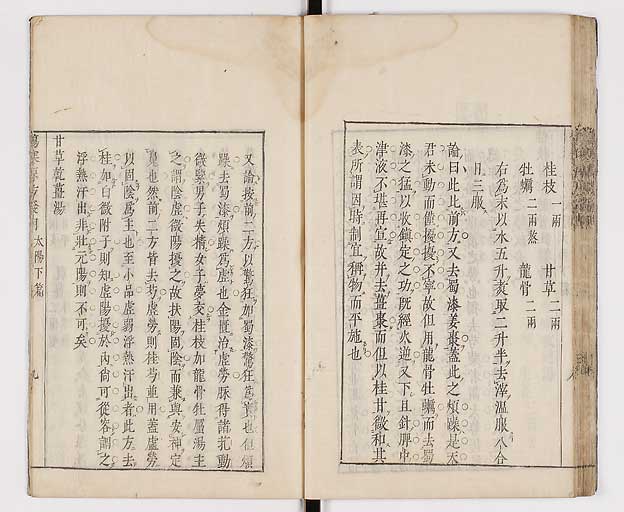 桂枝 一兩 甘草 二兩
牡蠣 二兩熬 龍骨 二兩
右爲末以水五升煑取二升半去滓溫服八合
日三服
論曰此比前方又去蜀漆姜棗蓋此之煩躁是天
君未動而僃擬擬不寧故但用龍骨牡蠣而去蜀
漆之猛以收鎮定之功既經火逆又下且針脾中
津液不堪再宣故并去薑棗而但以桂甘微和其
表所謂因時制宜稱物而平施也
又論按前二方以驚狂加蜀漆驚狂爲實也但煩
躁去蜀漆煩躁爲虛也金匱治虛勞脉得諸芤動
微緊男子失精女子夢交桂枝加龍骨牡蠣湯主
之謂陰虛微陽擾之故扶陽固陰而兼與安神定
魄也然前二方皆去芍虛勞則桂芍並用蓋虛勞
以固陰爲主也至小品虛羸浮熱汗出者此方去
桂加白薇附子則知虛陽擾於內尙可從容調之
浮熱汗出非壯元陽則不可矣
甘草乾薑湯
太陽下篇
九